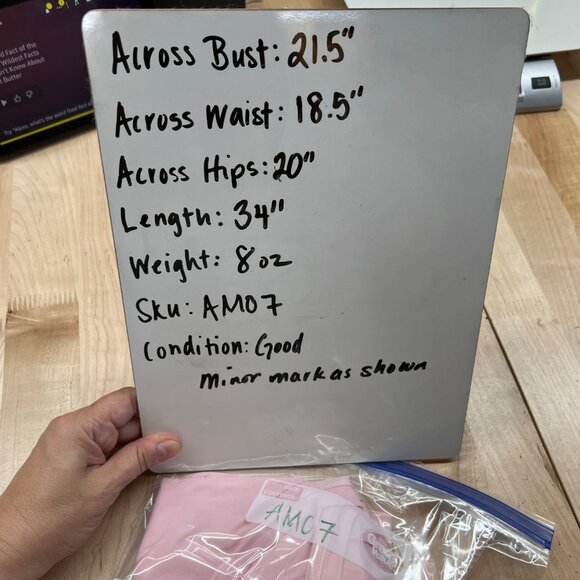 d Fact of the
Wildest Facts
n't Know About
t Butter
Try "Alexa, what's the word fowl
Across Bust: 21.5"
Across Waist: 18.5"
Across Hips: 20"
Length: 34"
Weight: 8 oz
Sku: AM07
Condition: Good
minor mark as shown
AM07